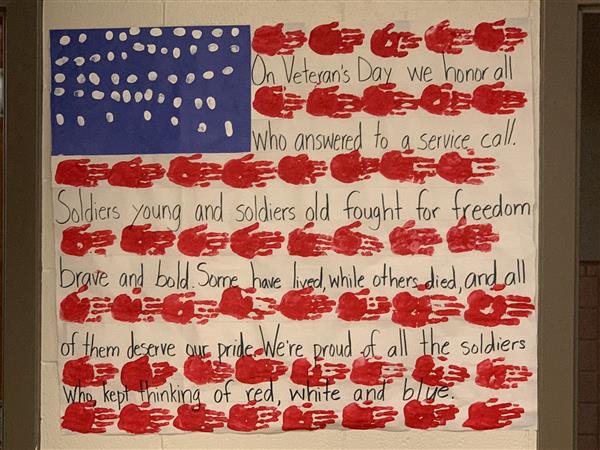 On Veteran's Day we honor all
who answered to a service call.
Soldiers young and soldiers old fought for freedom
brave and bold. Some have lived, while others died, and all
of them deserve our pride. We're proud of all the soldiers
who kept thinking of red, white and blue.